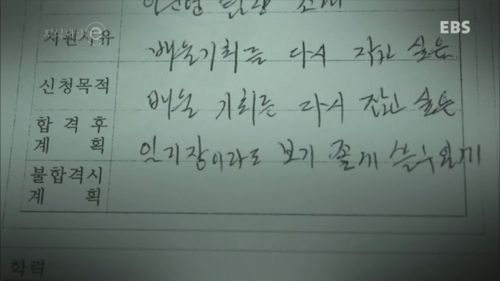 EBS
지원사유
배울기회를 다시 잡고 싶음
신청목적
배울 기회를 다시 잡고 싶은
합격후
계획
일기장이라도 보기 좋게 쓸수있게
불합격시
계획
학력